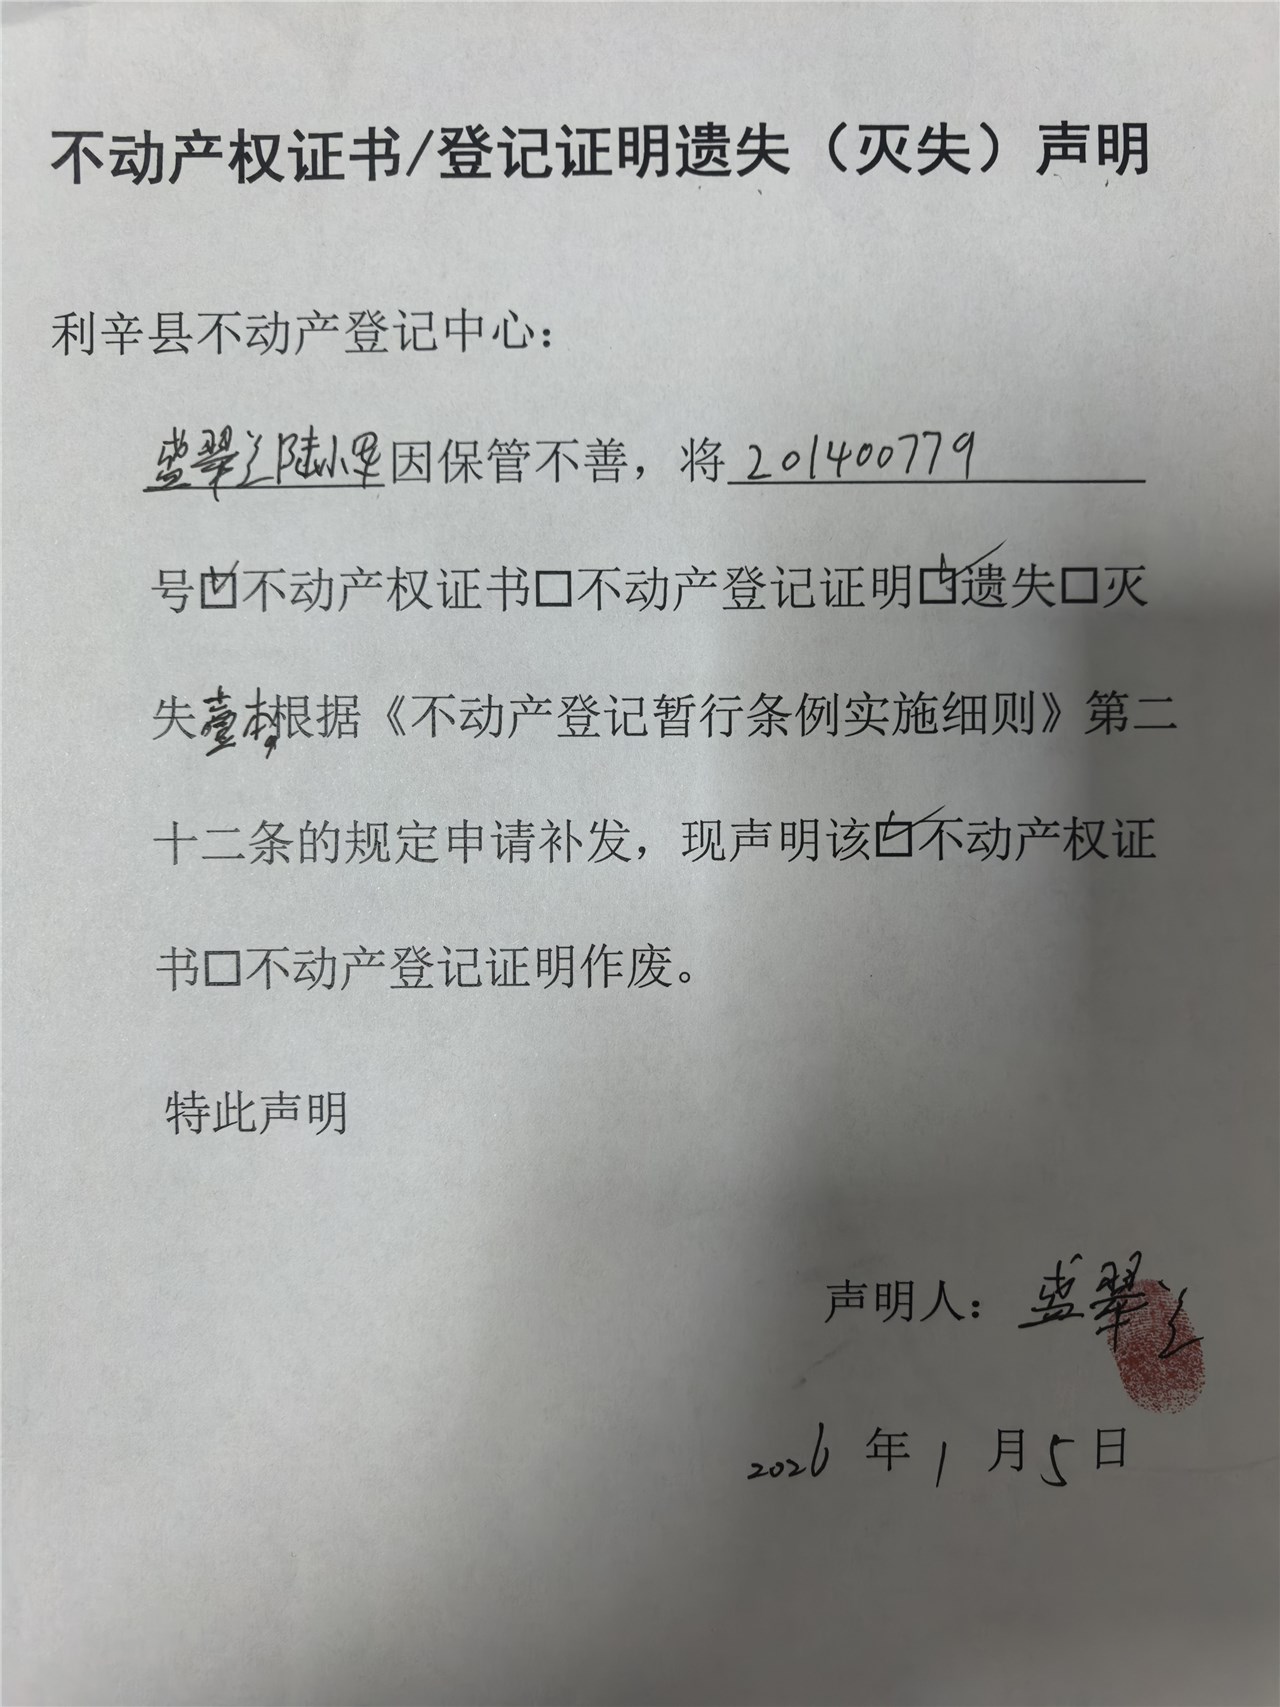 不动产权证书/登记证明遗失（灭失）声明
利辛县不动产登记中心：
翠兰陆小军因保管不善，将201400779
号☑不动产权证书□不动产登记证明☑遗失□灭
失壹本，根据《不动产登记暂行条例实施细则》第二
十二条的规定申请补发，现声明该☑不动产权证
书□不动产登记证明作废。
特此声明
声明人：翠兰
2026年1月5日